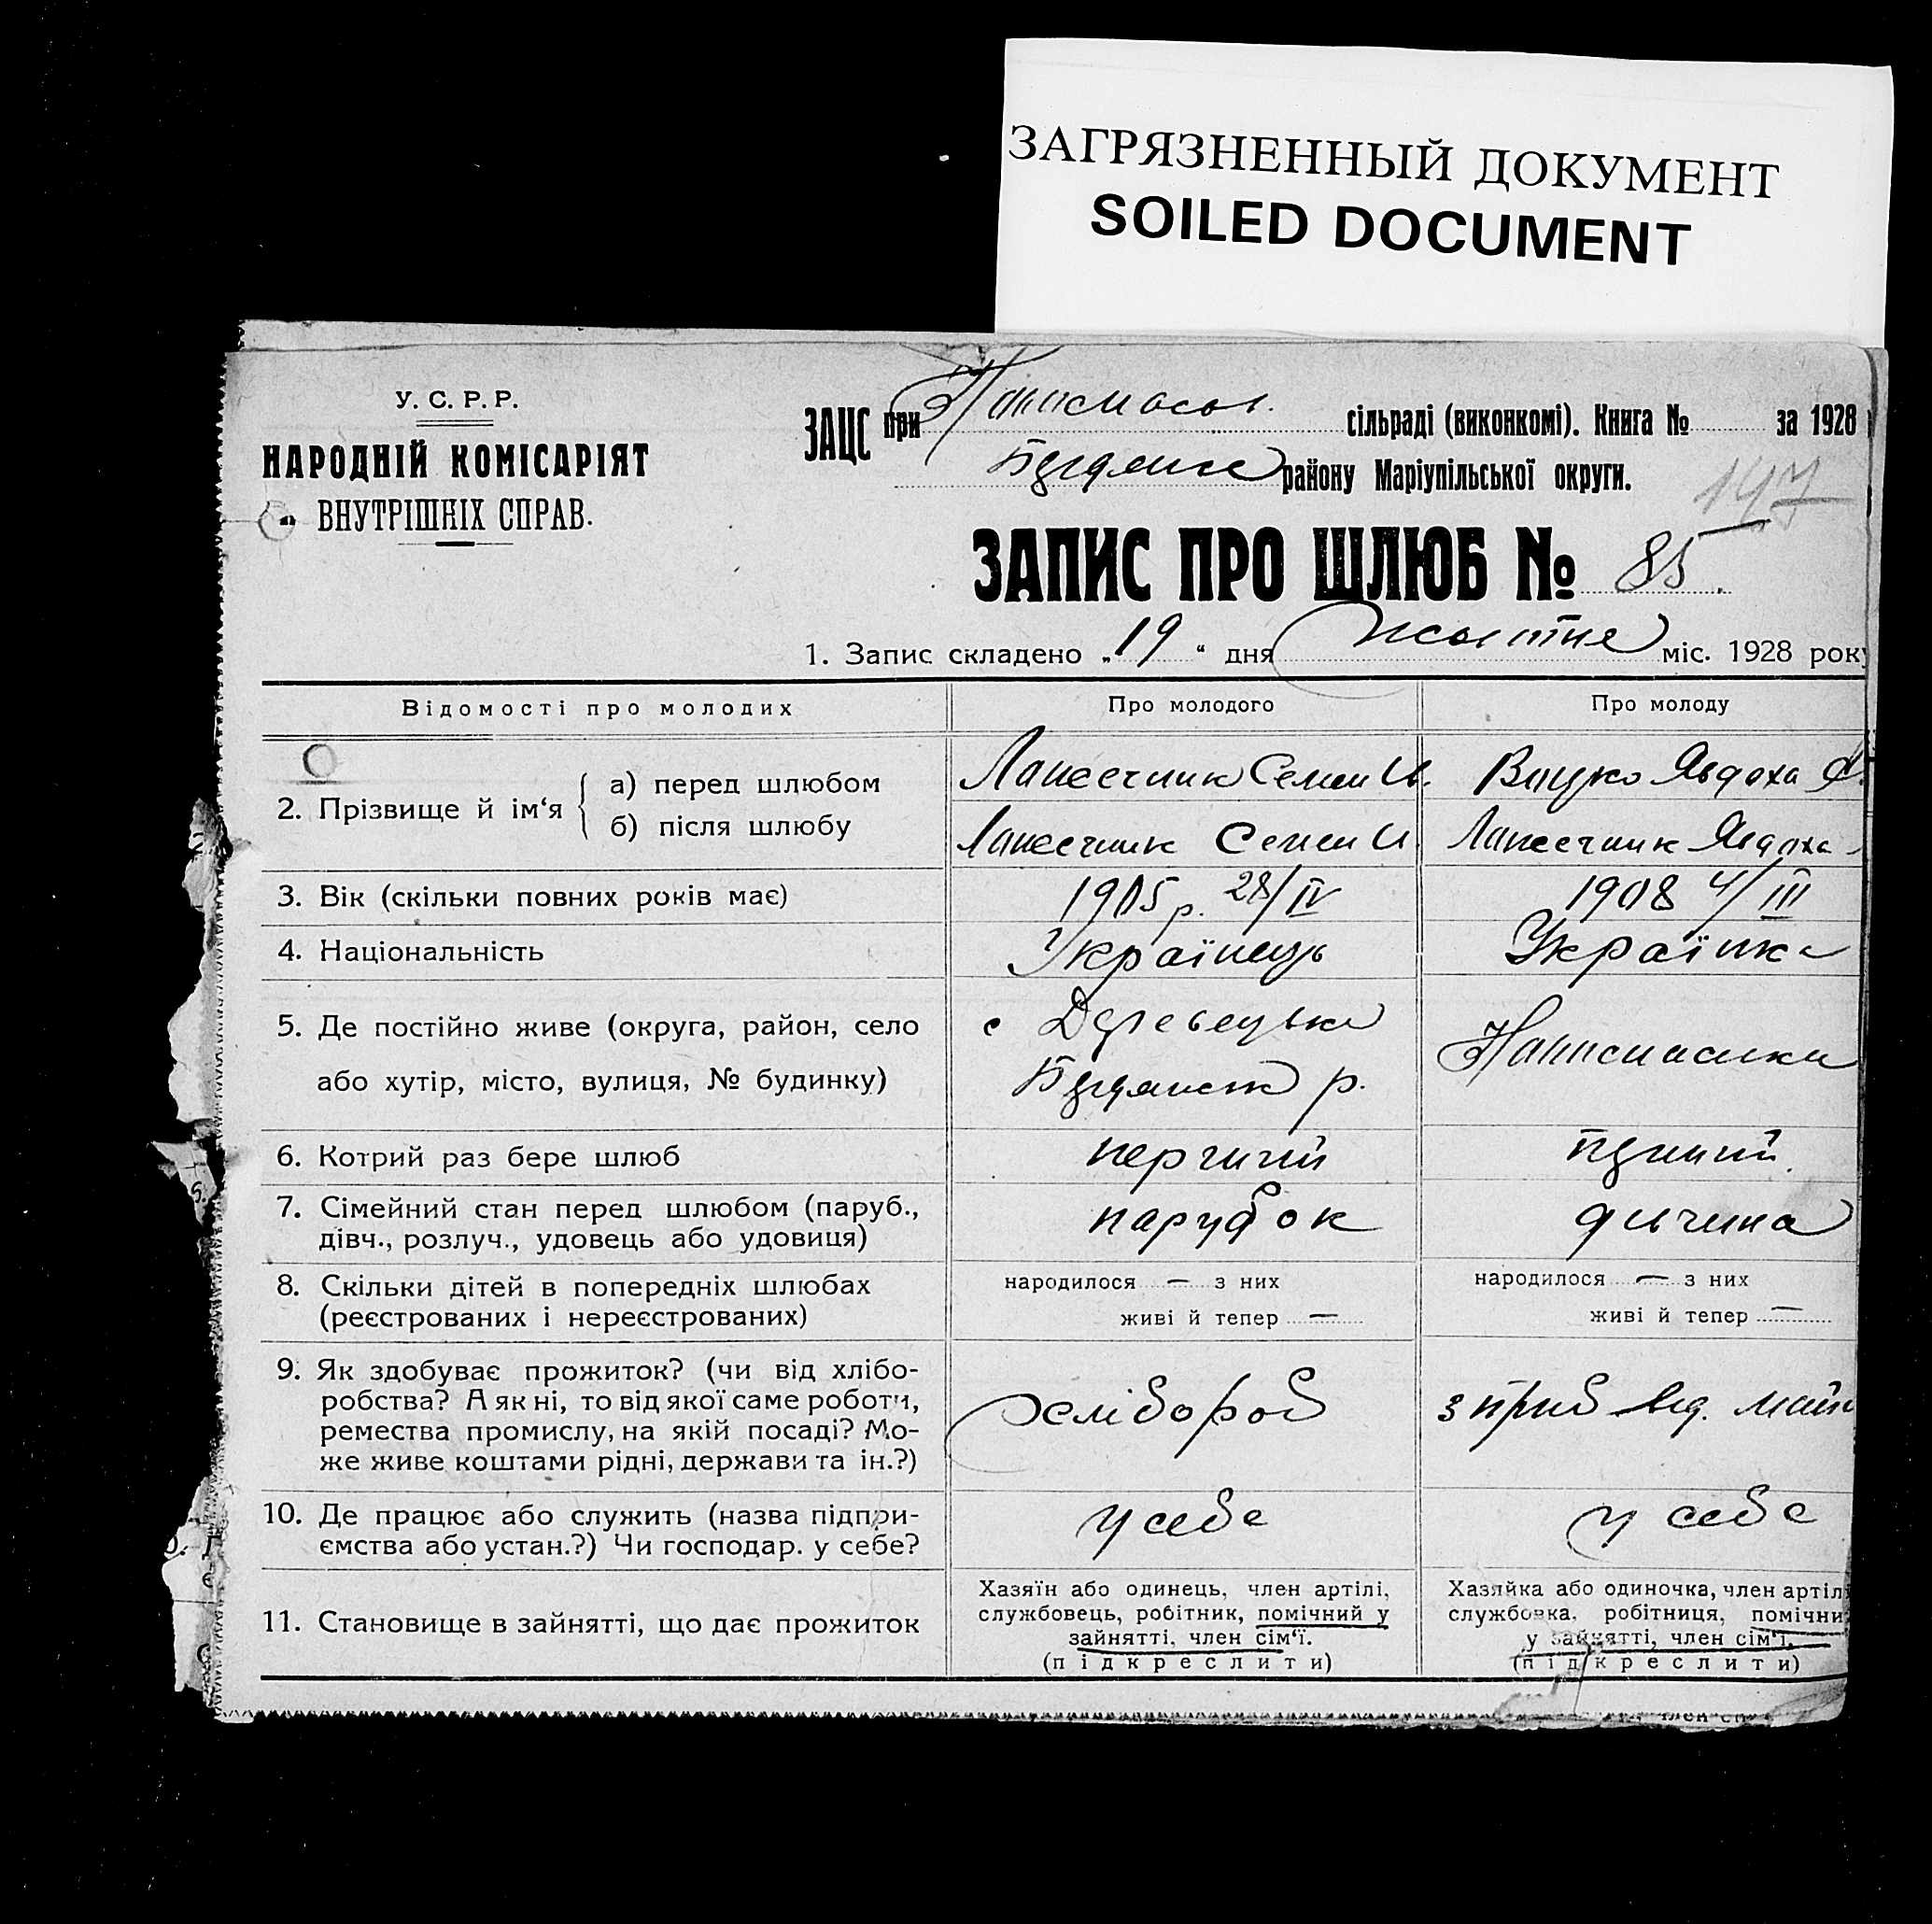 ЗАГРЯЗНЕННЫЙ ДОКУМЕНТ
SOILED DOCUMENT
У. С. Р. Р.
НАРОДНІЙ КОМІСАРІЯТ
ВНУТРІШНІХ СПРАВ.
ЗАЦС при сільраді (виконкомі). Книга № за 1928
району Маріупільської округи.
147
ЗАПИС ПРО ШЛЮБ № 85.
1. Запис складено „19“ дня Жовтня міс. 1928 року
Відомості про молодих
Про молодого
Про молоду
2. Прізвище й ім‘я
а) перед шлюбом
Семен И.
Явдоха
б) після шлюбу
Семен И
Явдоха
3. Вік (скільки повних років має)
1905 р. 28/IV
1908 4/III
4. Національність
Українець
Українка
5. Де постійно живе (округа, район, село
або хутір, місто, вулиця, № будинку)
с
р.
6. Котрий раз бере шлюб
перший
7. Сімейний стан перед шлюбом (паруб.,
дівч., розлуч., удовець або удовиця)
парубок
дивчина
8. Скільки дітей в попередніх шлюбах
(реєстрованих і нереєстрованих)
народилося — з них
живі й тепер —
народилося — з них
живі й тепер —
9. Як здобуває прожиток? (чи від хлібо-
робства? А як ні, то від якої саме роботи,
ремества промислу, на якій посаді? Мо-
же живе коштами рідні, держави та ін.?)
Хлібороб
з приб від. майн
10. Де працює або служить (назва підпри-
ємства або устан.?) Чи господар. у себе?
у себе
у себе
11. Становище в зайнятті, що дає прожиток
Хазяїн або одинець, член артілі,
службовець, робітник, помічний у
зайнятті, член сім‘ї.
(підкреслити)
Хазяйка або одиночка, член артіл
службовка, робітниця, помічни
у зайнятті, член сім‘ї.
(підкреслити)